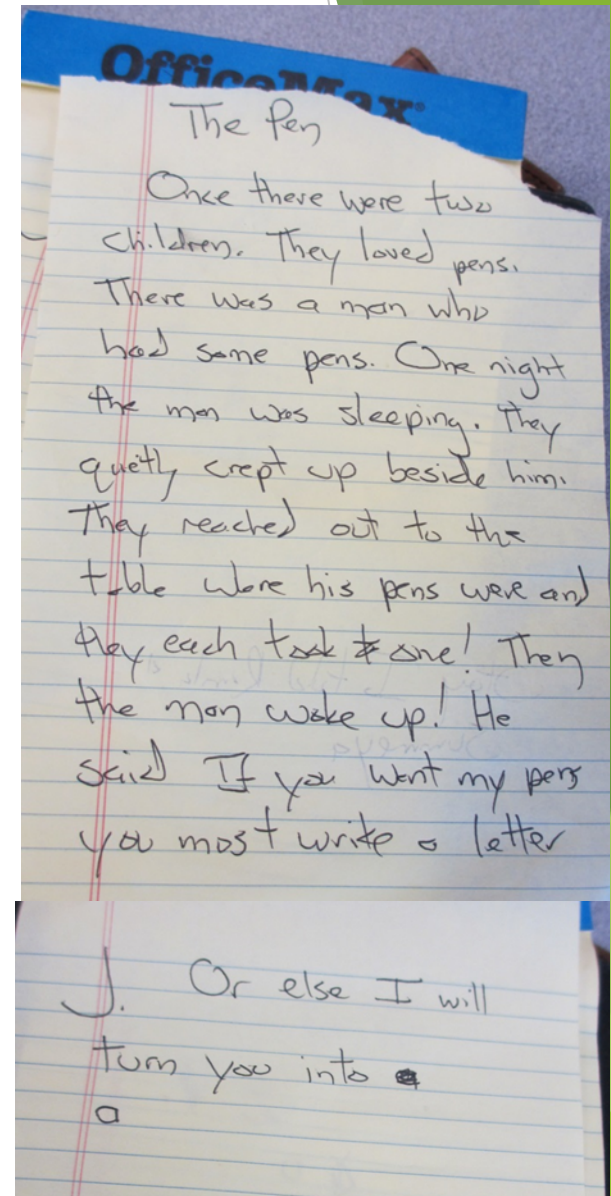 OfficeMax
The Pen
Once there were two
children. They loved pens.
There was a man who
had some pens. One night
the man was sleeping. They
quietly crept up beside him.
They reached out to the
table were his pens were and
they each took one! Then
the man woke up! He
said If you want my pens
you most write a letter
J. Or else I will
turn you into
a